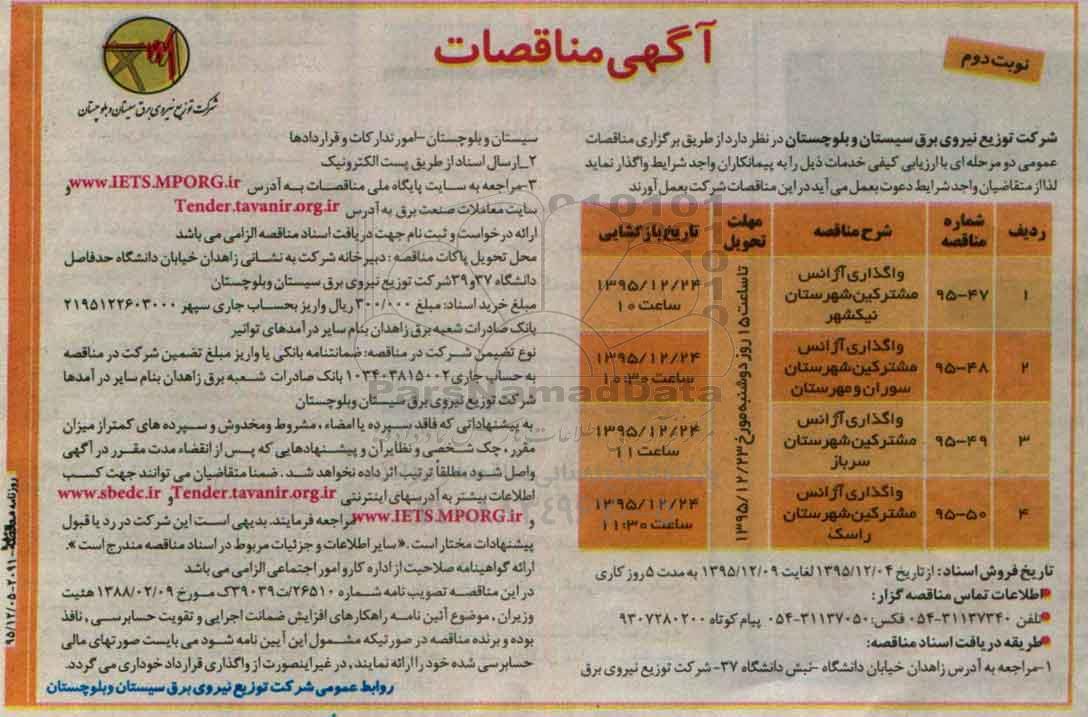 آگهی مناقصات
نوبت دوم
شرکت توزیع نیروی برق سیستان و بلوچستان
شرکت توزیع نیروی برق سیستان و بلوچستان در نظر دارد از طریق برگزاری مناقصات
عمومی دو مرحله ای با ارزیابی کیفی خدمات ذیل را به پیمانکاران واجد شرایط واگذار نماید
لذا از متقاضیان واجد شرایط دعوت بعمل می آید در این مناقصات شرکت بعمل آورند
ردیف شماره مناقصه شرح مناقصه مهلت تحویل تاریخ بازگشایی
۱ ۹۵-۴۷ واگذاری آژانس مشترکین شهرستان نیکشهر ۱۳۹۵/۱۲/۲۴ ساعت ۱۰
۲ ۹۵-۴۸ واگذاری آژانس مشترکین شهرستان سوران و مهرستان ۱۳۹۵/۱۲/۲۴ ساعت ۱۰:۳۰
۳ ۹۵-۴۹ واگذاری آژانس مشترکین شهرستان سرباز ۱۳۹۵/۱۲/۲۴ ساعت ۱۱
۴ ۹۵-۵۰ واگذاری آژانس مشترکین شهرستان راسک ۱۳۹۵/۱۲/۲۴ ساعت ۱۱:۳۰
تا ساعت ۱۵ روز دوشنبه مورخ ۱۳۹۵/۱۲/۲۳
تاریخ فروش اسناد: از تاریخ ۱۳۹۵/۱۲/۰۴ لغایت ۱۳۹۵/۱۲/۰۹ به مدت ۵ روز کاری
اطلاعات تماس مناقصه گزار:
تلفن ۳۱۱۳۷۳۴۰-۰۵۴ فکس: ۳۱۱۳۷۰۵۰-۰۵۴ پیام کوتاه ۹۳۰۷۲۸۰۲۰۰
طریقه دریافت اسناد مناقصه:
۱-مراجعه به آدرس زاهدان خیابان دانشگاه -نبش دانشگاه ۳۷- شرکت توزیع نیروی برق
سیستان و بلوچستان-امور تدارکات و قراردادها
۲_ارسال اسناد از طریق پست الکترونیک
۳-مراجعه به سایت پایگاه ملی مناقصات به آدرس www.IETS.MPORG.ir و
سایت معاملات صنعت برق به آدرس Tender.tavanir.org.ir
ارائه درخواست و ثبت نام جهت دریافت اسناد مناقصه الزامی می باشد
محل تحویل پاکات مناقصه : دبیرخانه شرکت به نشانی زاهدان خیابان دانشگاه حدفاصل
دانشگاه ۳۷و۳۹ شرکت توزیع نیروی برق سیستان وبلوچستان
مبلغ خرید اسناد: مبلغ ۳۰۰/۰۰۰ ریال واریز بحساب جاری سپهر ۲۱۹۵۱۲۲۶۰۳۰۰۰
بانک صادرات شعبه برق زاهدان بنام سایر درآمدهای توانیر
نوع تضیمن شرکت در مناقصه: ضمانتنامه بانکی یا واریز مبلغ تضمین شرکت در مناقصه
به حساب جاری ۱۰۳۴۰۳۸۱۵۰۰۲ بانک صادرات شعبه برق زاهدان بنام سایر درآمدها
شرکت توزیع نیروی برق سیستان وبلوچستان
به پیشنهاداتی که فاقد سپرده یا امضاء ، مشروط ومخدوش و سپرده های کمتر از میزان
مقرر ، چک شخصی و نظایر آن و پیشنهادهایی که پس از انقضاء مدت مقرر در آگهی
واصل شود مطلقاً ترتیب اثر داده نخواهد شد . ضمنا متقاضیان می توانند جهت کسب
اطلاعات بیشتر به آدرسهای اینترنتی Tender.tavanir.org.ir و www.sbedc.ir
و www.IETS.MPORG.ir مراجعه فرمایند. بدیهی است این شرکت در رد یا قبول
پیشنهادات مختار است . «سایر اطلاعات و جزئیات مربوط در اسناد مناقصه مندرج است ».
ارائه گواهینامه صلاحیت از اداره کار و امور اجتماعی الزامی می باشد
در این مناقصه تصویب نامه شماره ۲۶۵۱۰/ت۳۹۰۳۹ک مورخ ۱۳۸۸/۰۲/۰۹ هئیت
وزیران ، موضوع آئین نامه راهکارهای افزایش ضمانت اجرایی و تقویت حسابرسی ، نافذ
بوده و برنده مناقصه در صورتیکه مشمول این آیین نامه شود می بایست صورتهای مالی
حسابرسی شده خود را ارائه نمایند ، در غیر اینصورت از واگذاری قرارداد خوداری می گردد.
روابط عمومی شرکت توزیع نیروی برق سیستان وبلوچستان
ParsNamadData
۹۵/۱۲/۰۵-۲۰۹۱